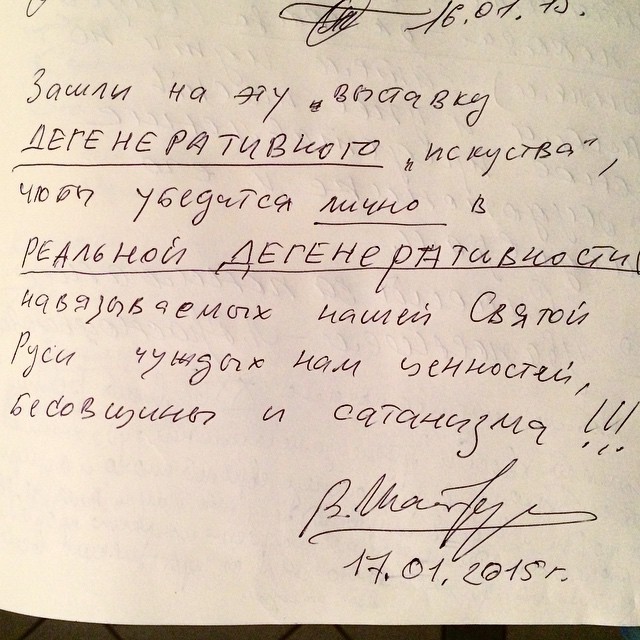 16.01.15.
Зашли на эту „выставку
ДЕГЕНЕРАТИВНОГО „искуства“,
чтобы убедится лично в
РЕАЛЬНОЙ ДЕГЕНЕРАТИВНОСТИ
навязываемых нашей Святой
Руси чуждых нам ценностей,
бесовщины и сатанизма !!!
17.01.2015г.